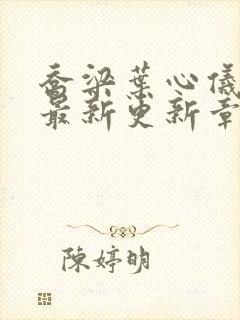 乔梁葉心儀
最新更新章
陳婷明